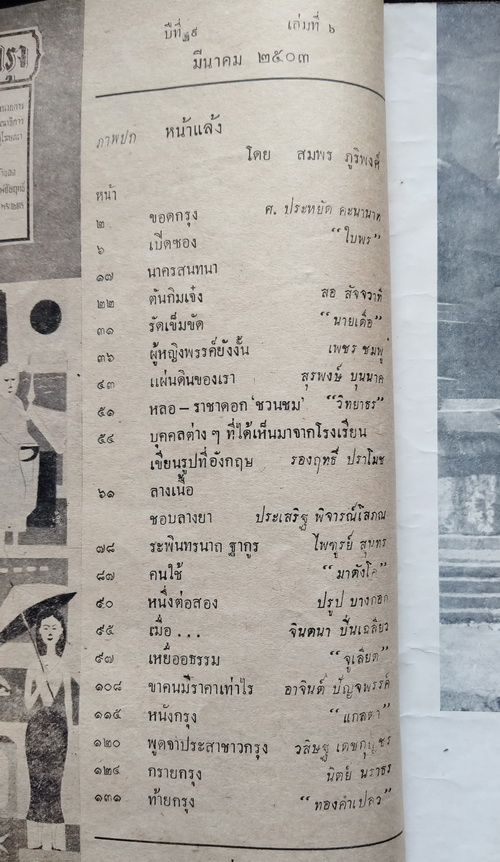 รุง
ปีที่ ๑๙ เล่มที่ ๖
มีนาคม ๒๕๐๓
ภาพปก หน้าแล้ง
โดย สมพร ภูริพงศ์
หน้า
๒ ขอดกรุง ศ. ประหยัด คะนานาท
๖ เปิดซอง “ใบพร”
๑๗ นาครสนทนา
๒๒ ต้นกิมเจ๋ง สอ สัจจวาที
๓๑ รัดเข็มขัด “นายเดื่อ”
๓๖ ผู้หญิงพรรค์ยังงั้น เพชร ชมพู
๔๓ แผ่นดินของเรา สุรพงษ์ บุนนาค
๕๑ หลอ – ราชาดอก ‘ชวนชม’ “วิทยาธร”
๕๔ บุคคลต่าง ๆ ที่ได้เห็นมาจากโรงเรียน
เขียนรูปที่อังกฤษ รองฤทธิ์ ปราโมช
๖๑ ลางเนื้อ
ชอบลางยา ประเสริฐ พิจารณ์โสภณ
๗๘ ระพินทรนาถ ฐากูร ไพฑูรย์ สุนทร
๘๗ คนใช้ “มาตังโค”
๙๐ หนึ่งต่อสอง ปรูป บางกอก
๙๕ เมื่อ . . . จินตนา ปิ่นเฉลียว
๙๗ เหยื่ออธรรม “จูเลียต”
๑๐๘ ขาคนมีราคาเท่าไร อาจินต์ ปัญจพรรค์
๑๑๕ หนังกรุง “แกลตา”
๑๒๐ พูดจาประสาชาวกรุง วสิษฐ เดชกุญชร
๑๒๔ กรายกรุง นิตย์ นราธร
๑๓๑ ท้ายกรุง “ทองคำเปลว”